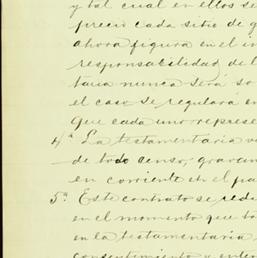 y tal cual en ellos se
precio cada sitio de g
ahora figura en el in
responsabilidad del
taria nunca será so
el caso se regulara en
que cada uno represe
4ª La testamentaria v
de todo censo, gravam
en corriente en el pa
5ª Este contrato se redu
en el momento que to
en la testamentaria,
consentimiento y enter